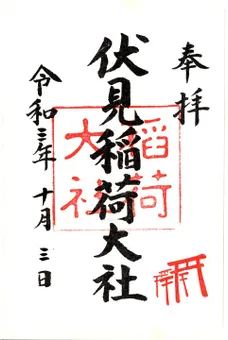 奉拝
伏見稲荷大社
稲荷
大社
令和三年 十月 三日